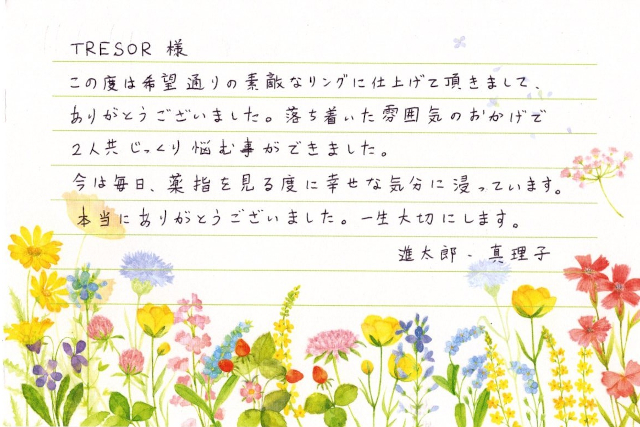 TRESOR 様
この度は希望通りの素敵なリングに仕上げて頂きまして、
ありがとうございました。落ち着いた雰囲気のおかげで
2人共じっくり悩む事ができました。
今は毎日、薬指を見る度に幸せな気分に浸っています。
本当にありがとうございました。一生大切にします。
進太郎・真理子